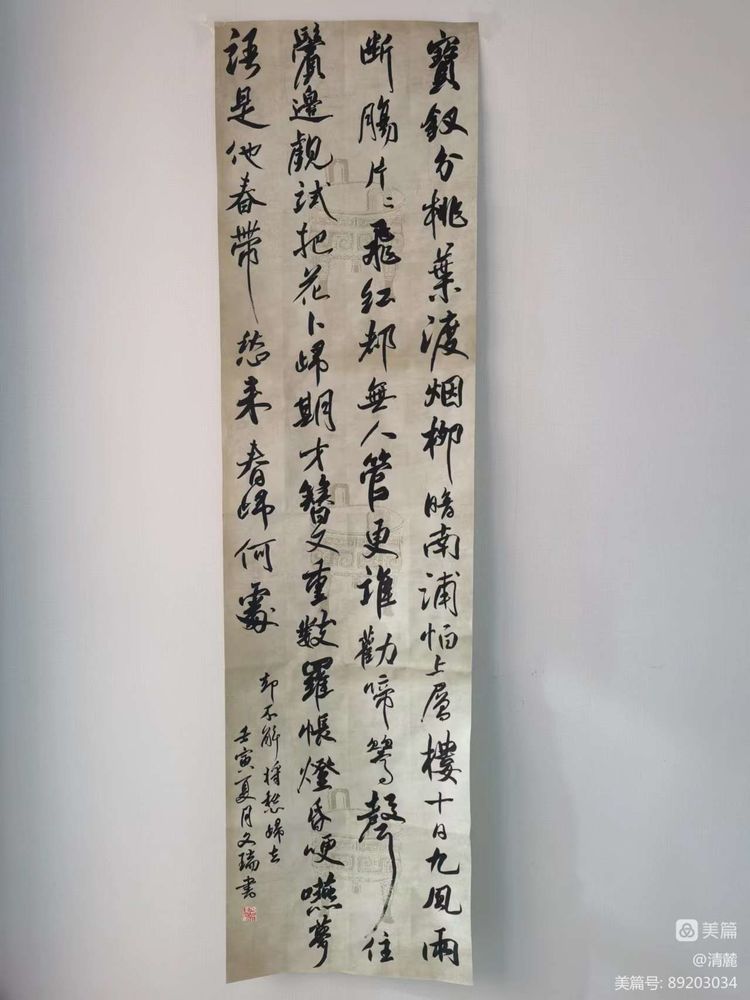 寶釵分桃葉渡烟柳暗南浦怕上層樓十日九風雨
断腸片〻飛紅都無人管更誰勸啼鶯聲住
鬢邊覷試把花卜歸期才簪又重數羅帳燈昏哽嚥夢
語是他春帶愁来春歸何處
却不解將愁歸去
壬寅夏月文瑞書
美篇
@清麓
美篇号: 89203034